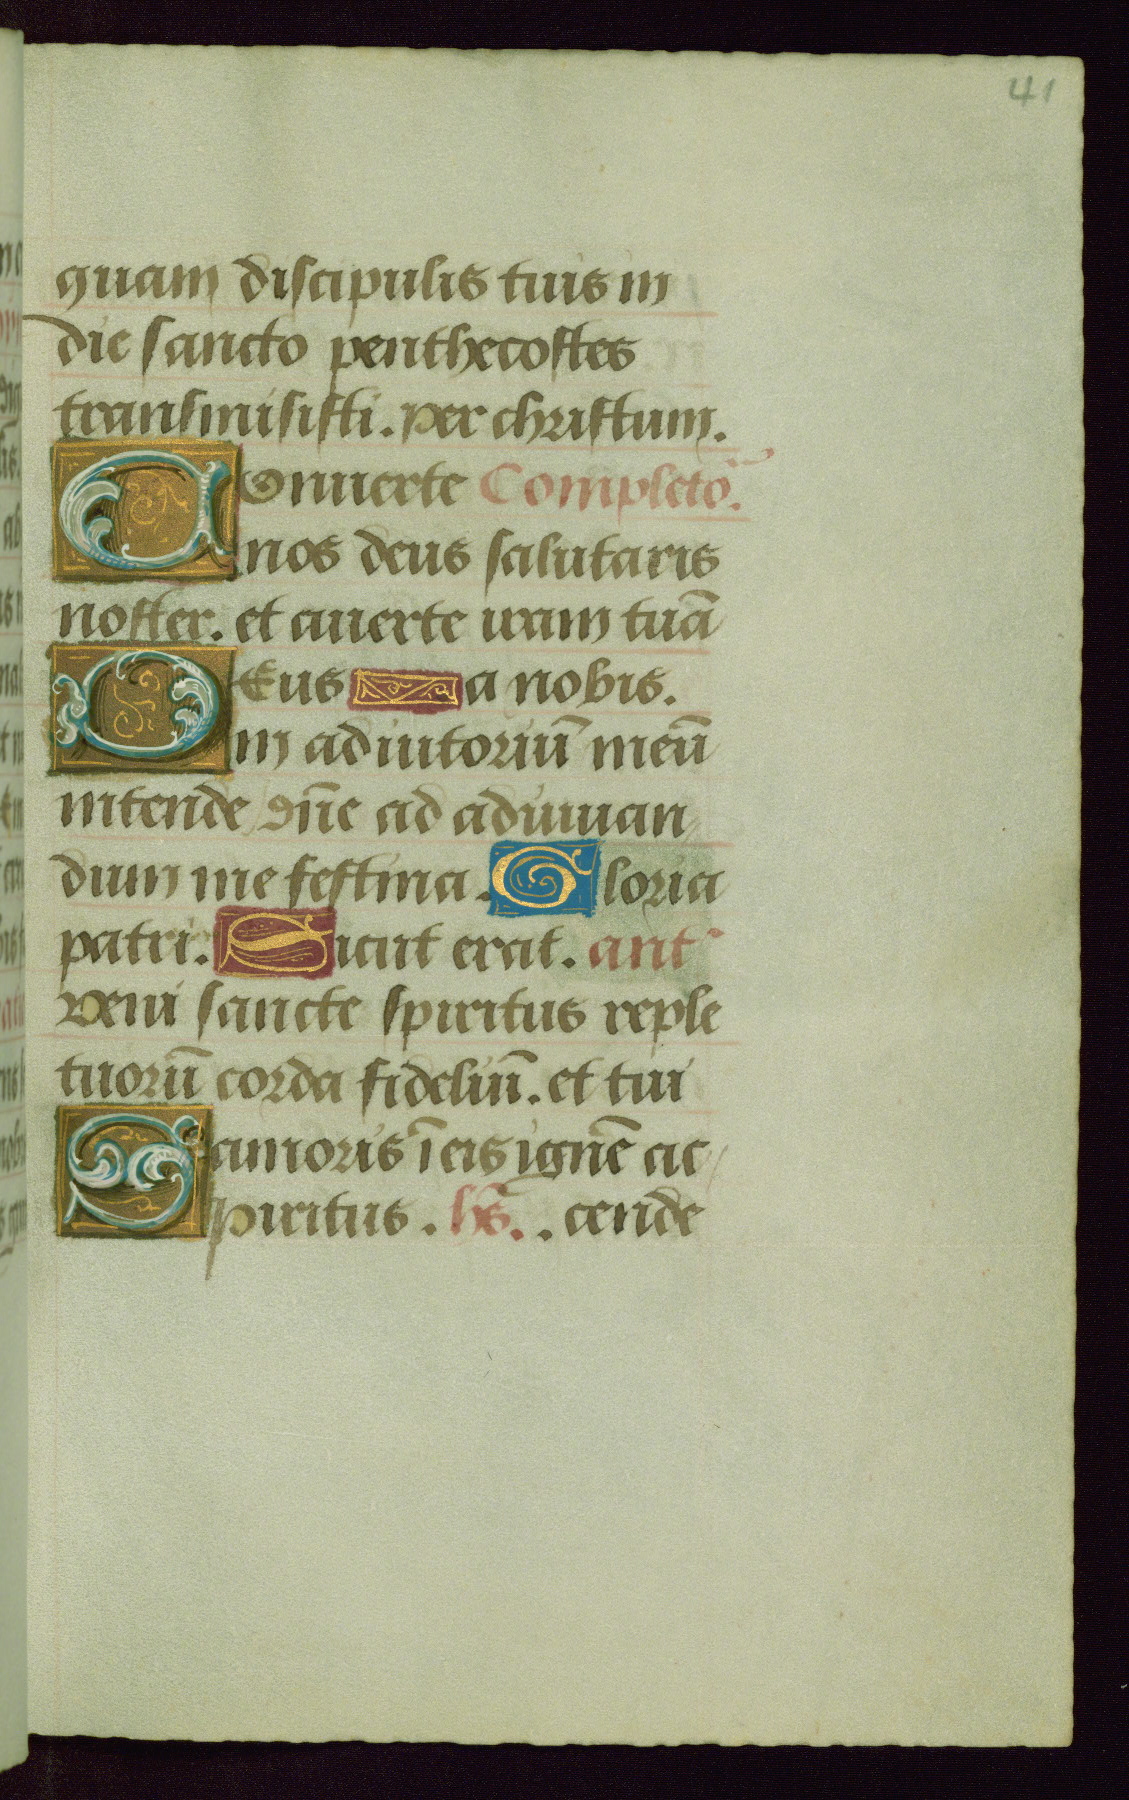 41
quam discipulis tuis in
die sancto penthecostes
transmisisti. per christum.
Conuerte Completō.
nos deus salutaris
noster. et auerte iram tuā
DEus a nobis.
In adiutoriū meū
intende dn̄e ad adiuuan
dum me festina. Gloria
patri. Sicut erat. ant
Veni sancte spiritus reple
tuorū corda fideliū. et tui
amoris ī eis ignē ac
Spiritus. hs̄. . cende